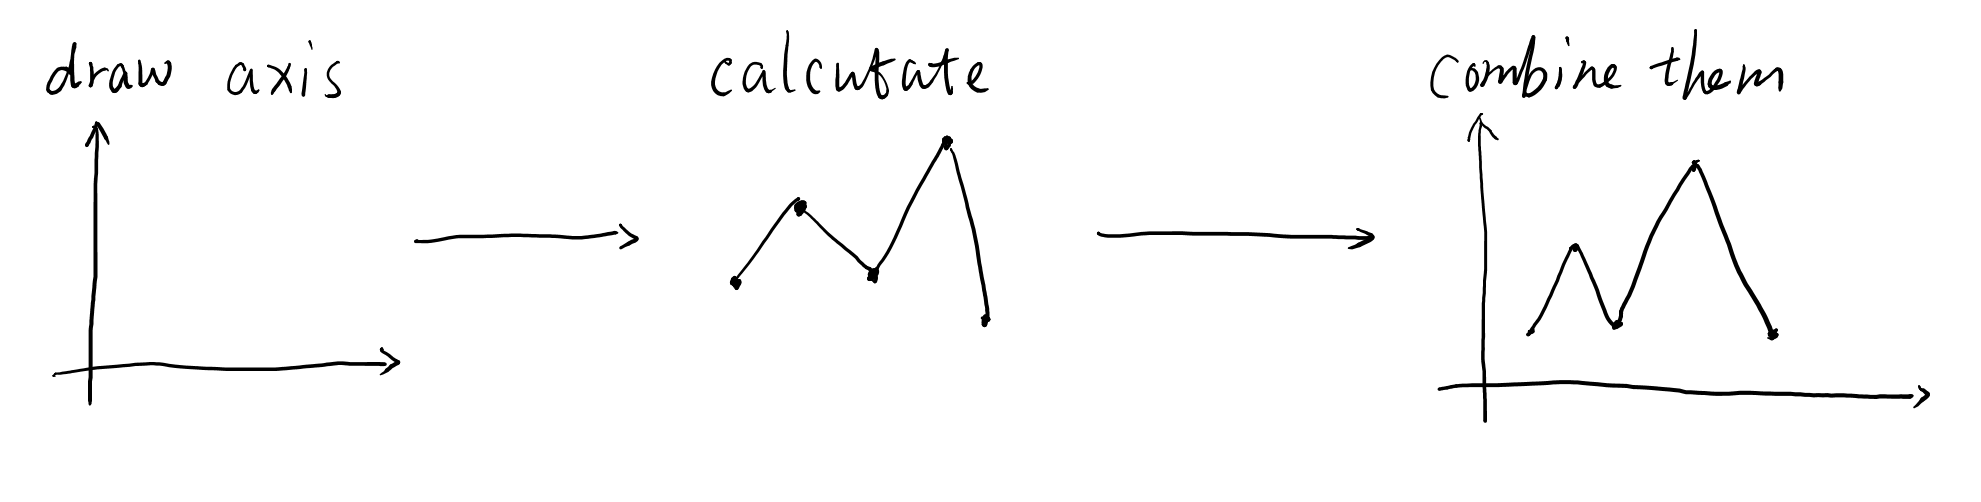 draw axis
calculate
combine them